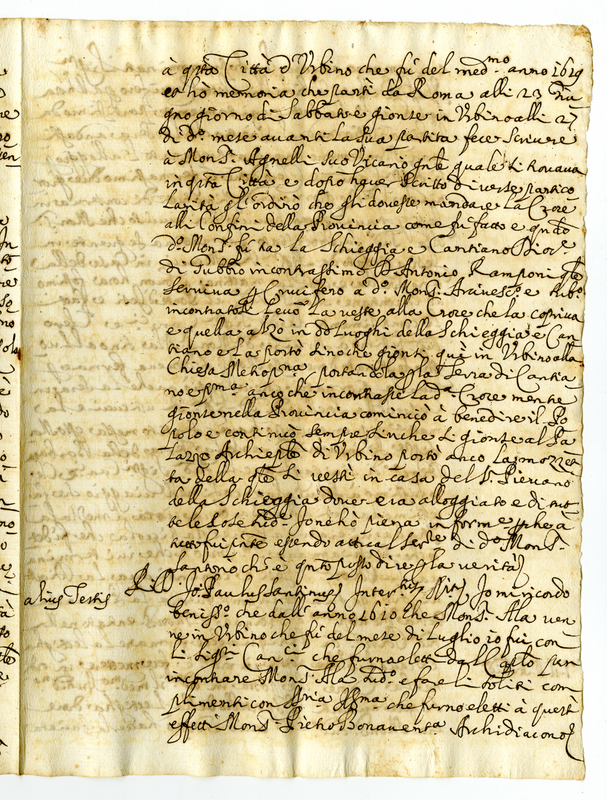 à qsta Città d'Urbino che fù del med.mo anno 1619
et hò memoria che partì da Roma alli 23 Giu
gno giorno di Sabbato e gionse in Urbino alli 27
di d.o mese avanti la sua partita fece scrivere
à Mons.r Agnelli suo Vicario gnle quale si trovava
in qsta Città e dopo haver scritto diverse partico
larità gl'ordinò che gli dovesse mandare la Croce
alli Confini della Provincia come fù fatto e qndo
d.o Mons.r fù tra la Schieggia e Cantiano Dioc.e
di Gubbio incontrassimo D. Antonio Ramponi qle
serviva p Crucifero a d.o Mons.r Arcivesc.o e sub.o
incontrato levò la veste alla Croce che la copriva
e quella alzò in dd Luoghi della Schieggia e Can
tiano e la portò sino che gionse quì in Urbino alla
Chiesa Metropna portandola p la Terra di Cantia
no e p.ma anco che incontrasse la d.a Croce mentre
gionse nella Provincia cominciò à benedire il Po
polo e continuò sempre sinche si gionse al Pa
lazzo Archieple di Urbino portò anco la mozzet
ta della qle si vestì in casa del S.r Pievano
della Schieggia dove era alloggiato e di tut
te le dd.e cose Io ne hò piena informe p che à
tutto fui pnte essendo attual ser.re di d.o Mons.r
Santorio ch'è qnto posso dire p la verità
alius Testis
R. D. Jo: Paulus Santinus Inter.tus Rit. Io mi ricordo
beniss.o che dall'anno 1610 che Mons.r Ala ven
ne in Urbino che fù del mese di Luglio io fui con
li sig.ri Can.ci che furno eletti dal Caplo per
incontrare Mons.r Ala sud.o e fare li soliti com
plimenti con S.ria Ill.ma che furno eletti à questi
effetti Mons.r Pietro Bonavent.a Archidiacono